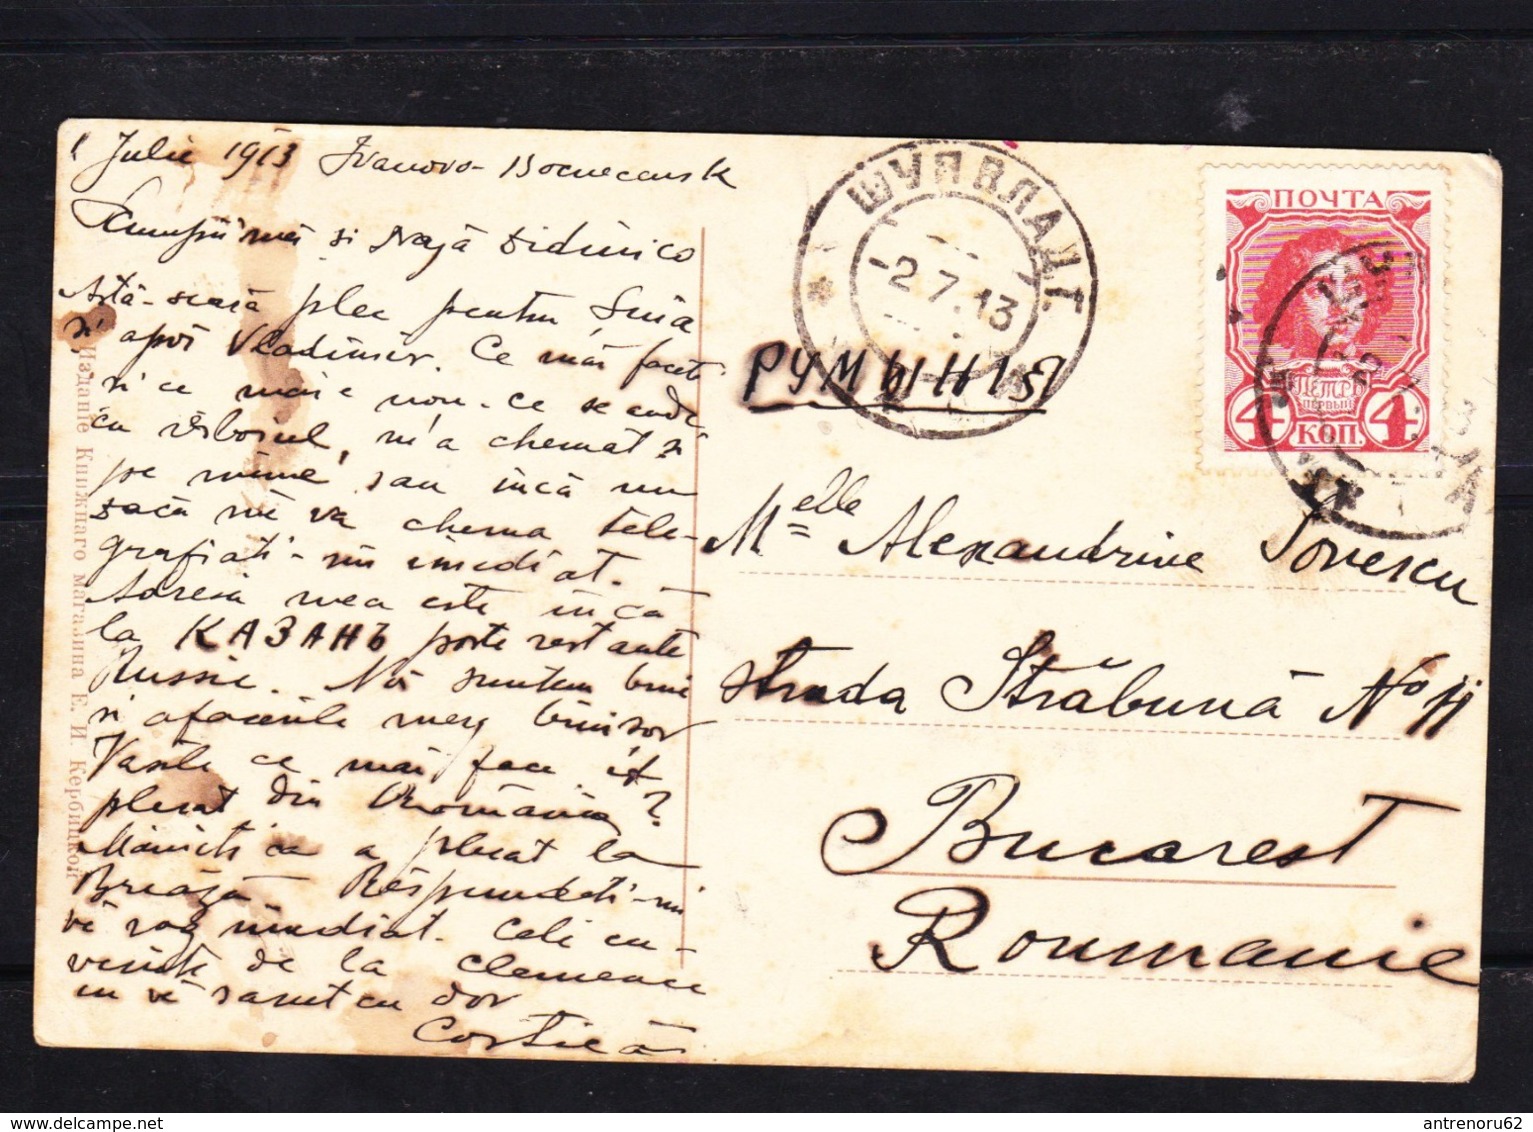 1 Julie 1913 Ivanovo-
mei și
Astă-seară plec pentru Șuia
și apoi Vladimir. Ce mai faceti
și ce mai e nou. Ce se aude
cu răsboiul, m'a chemat și
pe mine, sau încă nu
dacă mě va chema tele-
grafiati-mi imediat.
Adresa mea este încă
la КАЗАНЬ poste restante
Russie. Noi suntem bine
și afacerile merg binișor
Vasile ce mai face, a
plecat din România?
a plecat la
Breaza. Respundeti-mi
vě rog imediat. Cele cu-
venite de la
eu vě sarut cu dor
Costică
Изданіе Книжнаго магазина Е. И. Кербицкой
ШУЯ ВЛАД. Г.
-2.7.13
РУМЫНІЯ
ПОЧТА
ПЕТРЪ
ПЕРВЫЙ
4 КОП. 4
Melle Alexandrine Ionescu
Strada Străbună No 11
Bucarest
Roumanie
antrenoru62
delcampe.net